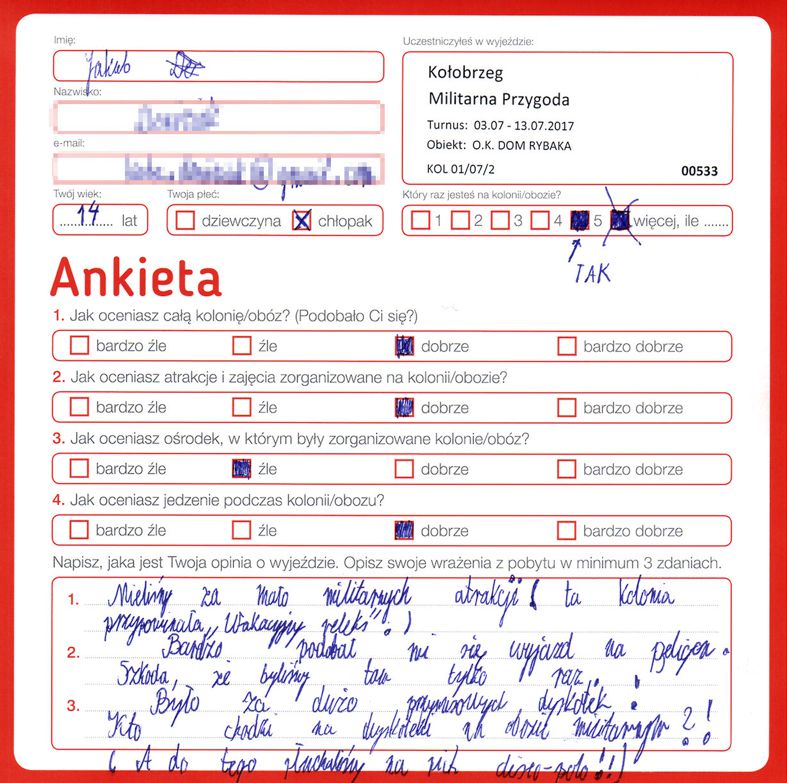 Imię:
Jakub
Uczestniczyłeś w wyjeździe:
Kołobrzeg
Militarna Przygoda
Turnus: 03.07 - 13.07.2017
Obiekt: O.K. DOM RYBAKA
KOL 01/07/2 00533
Nazwisko:
e-mail:
Twój wiek:
14 lat
Twoja płeć:
dziewczyna chłopak
Który raz jesteś na kolonii/obozie?
1 2 3 4 5 więcej, ile .......
TAK
Ankieta
1. Jak oceniasz całą kolonię/obóz? (Podobało Ci się?)
bardzo źle źle dobrze bardzo dobrze
2. Jak oceniasz atrakcje i zajęcia zorganizowane na kolonii/obozie?
bardzo źle źle dobrze bardzo dobrze
3. Jak oceniasz ośrodek, w którym były zorganizowane kolonie/obóz?
bardzo źle źle dobrze bardzo dobrze
4. Jak oceniasz jedzenie podczas kolonii/obozu?
bardzo źle źle dobrze bardzo dobrze
Napisz, jaka jest Twoja opinia o wyjeździe. Opisz swoje wrażenia z pobytu w minimum 3 zdaniach.
1. Mieliśmy za mało militarnych atrakcji ( ta kolonia
przypominała „Wakacyjny releks"!)
2. Bardzo podobał mi się wyjazd na poligon.
Szkoda, że byliśmy tam tylko raz.
3. Było za dużo przymusowych dyskotek!
Kto chodzi na dyskoteki na obozie militarnym?!
(A do tego słuchaliśmy na nich disco-polo!!)